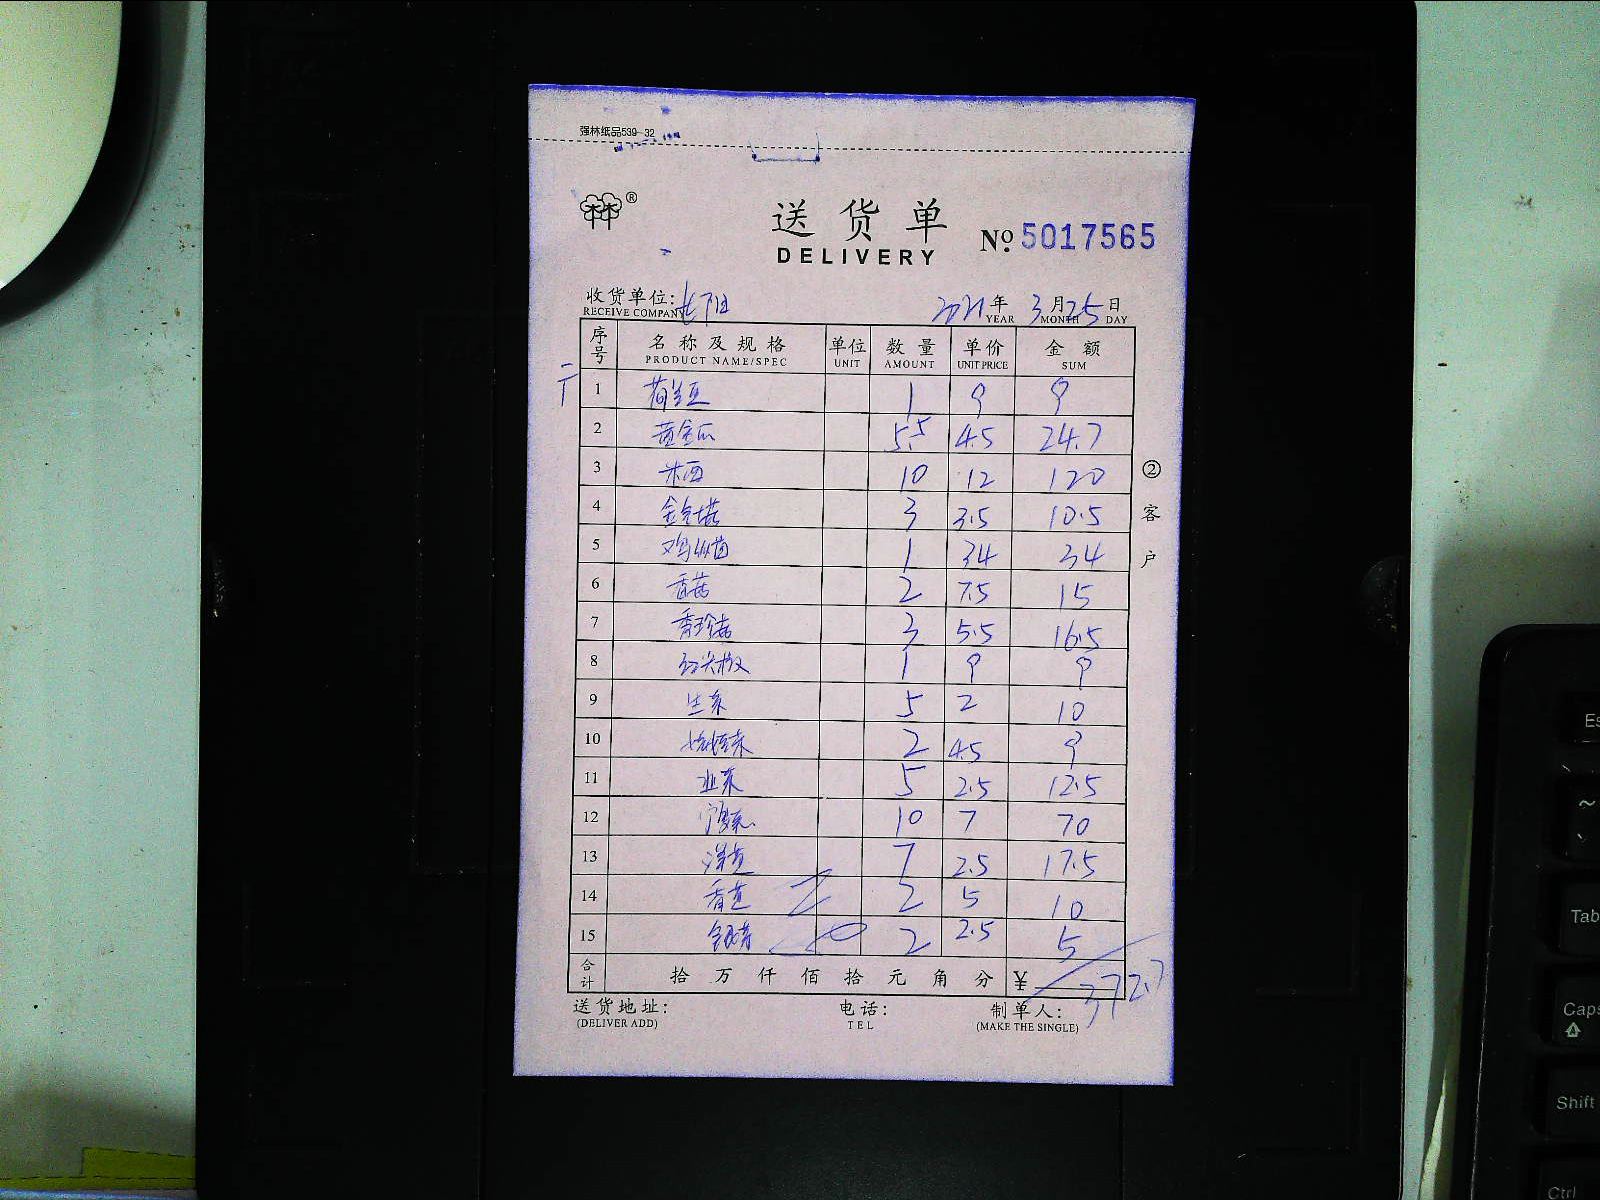 强林纸品539-32
送货单
DELIVERY
№ 5017565
收货单位: 长阳 2021年 3月25日
RECEIVE COMPANY YEAR MONTH DAY
序号 名称及规格 单位 数量 单价 金额
PRODUCT NAME/SPEC UNIT AMOUNT UNIT PRICE SUM
1 荷兰豆 1 9 9
2 黄金瓜 5.5 4.5 24.7
3 米西 10 12 120
4 金针菇 3 3.5 10.5
5 鸡枞菌 1 34 34
6 香菇 2 7.5 15
7 秀珍菇 3 5.5 16.5
8 红尖椒 1 9 9
9 生菜 5 2 10
10 娃娃菜 2 4.5 9
11 5 2.5 12.5
12 10 7 70
13 洋芋 7 2.5 17.5
14 香芹 2 5 10
15 2 2.5 5
合计 拾万仟佰拾元角分 ¥ 372.7
送货地址: 电话: 制单人:
(DELIVER ADD) TEL (MAKE THE SINGLE)
②客户
Es
~
Tab
Caps
Shift
Ctrl